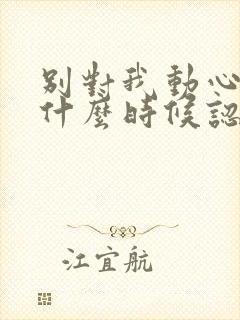 別對我動心
什麼時候認
江宜航